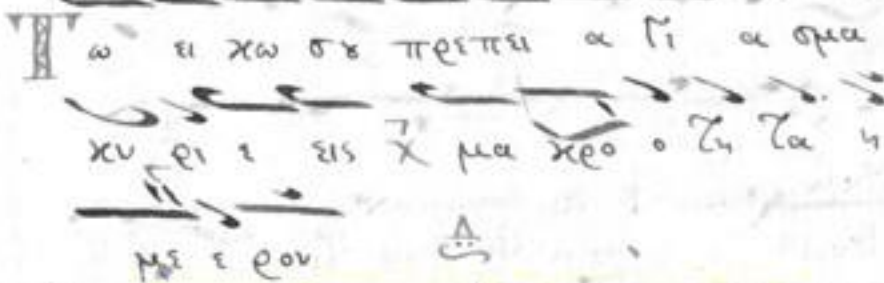 Τω ει κω σȣ πρεπει α γι α σμα
κυ ρι ε εις χ μα κρο ο τη τα η
με ε ρον